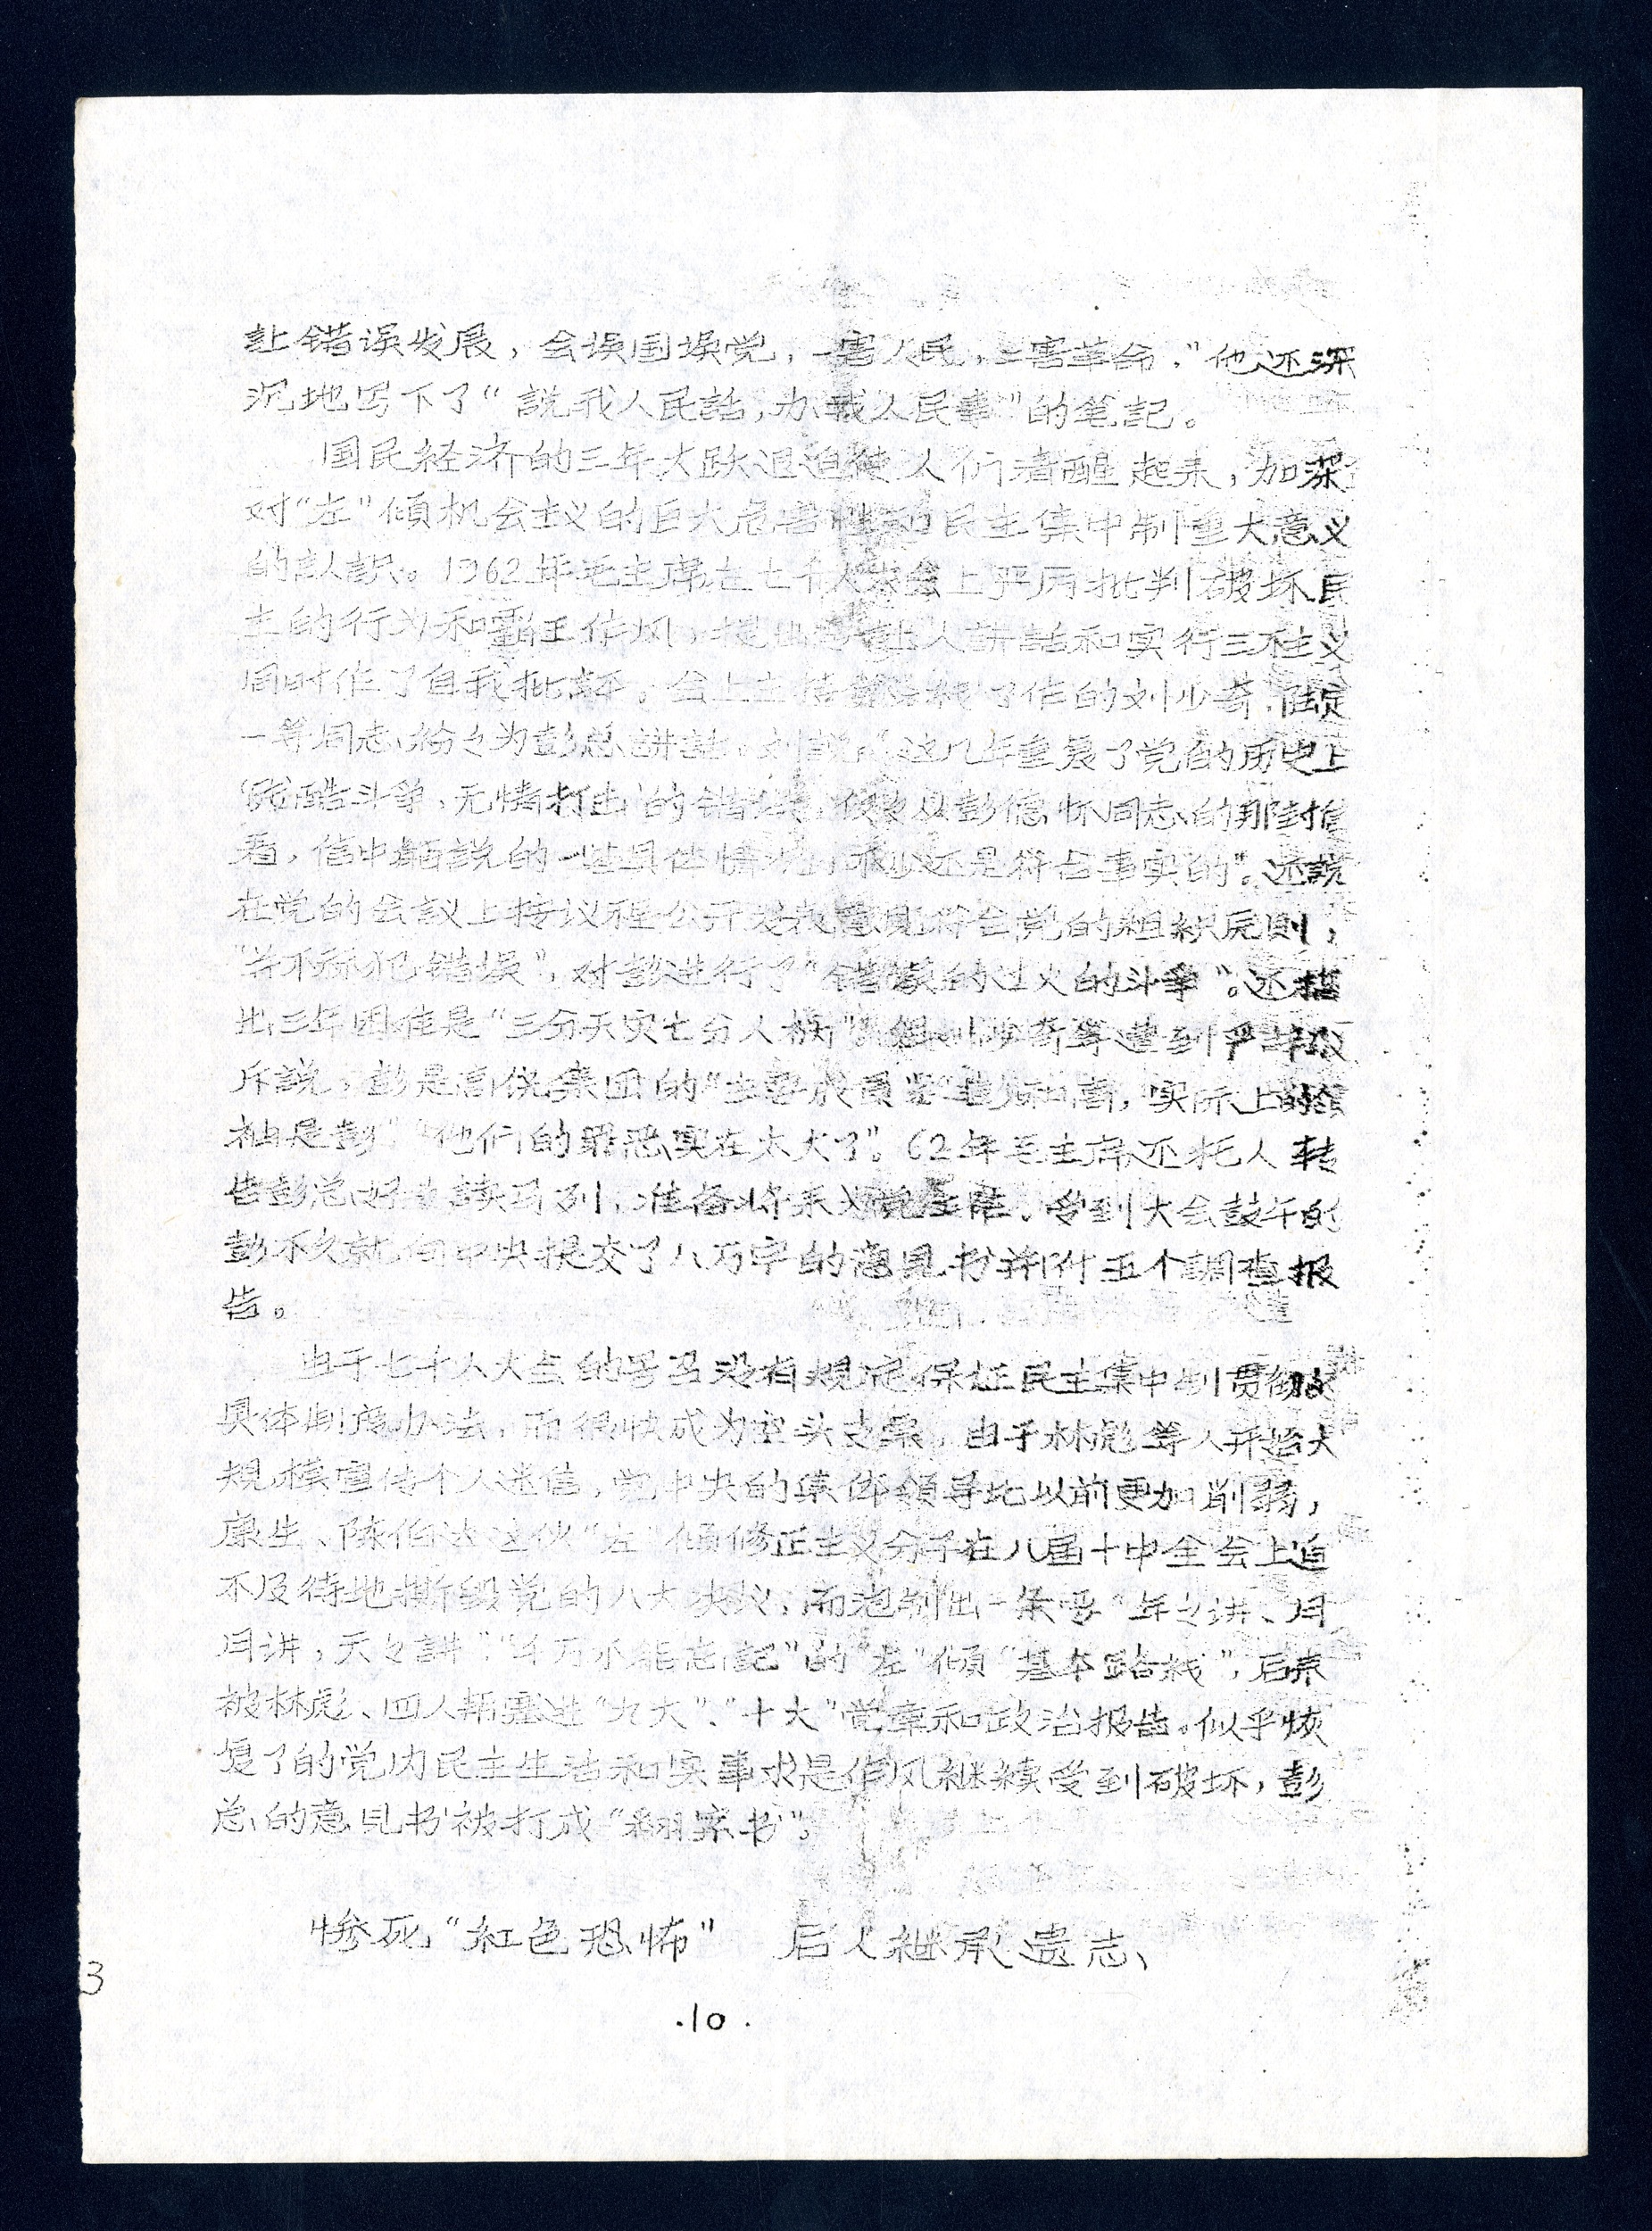 让错误发展，会误国误党，一害人民，二害革命。”他还深
沉地写下了“說我人民話，办我人民事”的笔記。
国民経济的三年大跃退迫使人们清醒起来，加深
对“左”倾机会主义的巨大危害性和民主集中制重大意义
的认識。1962年毛主席在七千人大会上严厉批判破坏民
主的行为和霸王作风，提出要让人讲話和实行三不主义
同时作了自我批評，会上主持 了作的刘少奇、陆定
一等同志纷々为彭总講話。刘說：“这几年重复了党的历史上
‘残酷斗争，无情打击’的错误，仅仅从彭德怀同志的那封信
看，信中所說的一些具体情况，不少还是符合事实的”。还說
在党的会議上按议程公开发表意見符合党的組織原則，
“并不称犯错误”，对彭进行了“错误的过火的斗争”。还指
出三年困难是“三分天灾七分人祸”。但刘少奇等遭到严
斥說，彭是高饶集团的“主要成員”， 实际上的領
袖是彭”“他们的罪恶实在太大了”。62年毛主席还托人转
告彭总好好讀马列，准备将来 受到大会鼓午的
彭不久就向中央提交了八万字的意見书并附五个調查报
告。
由于七千人大会的号召没有规定保证民主集中制贯彻的
具体制度办法，而很快成为空头支票，由于林彪等人开始大
規模宣传个人迷信，党中央的集体領导比以前更加削弱，
康生、陈伯达这伙“左”倾修正主义分子在八届十中全会上迫
不及待地撕毁党的八大决议，而泡制出一条要“年々讲、月
月讲，天々講”“千万不能忘記”的“左”倾“基本路线”，后来
被林彪、四人帮塞进“九大”、“十大”党章和政治报告。似乎恢
复了的党内民主生活和实事求是作风継续受到破坏，彭
总的意見书被打成“翻案书”。
惨死“紅色恐怖” 后人継承遗志
3
·10·